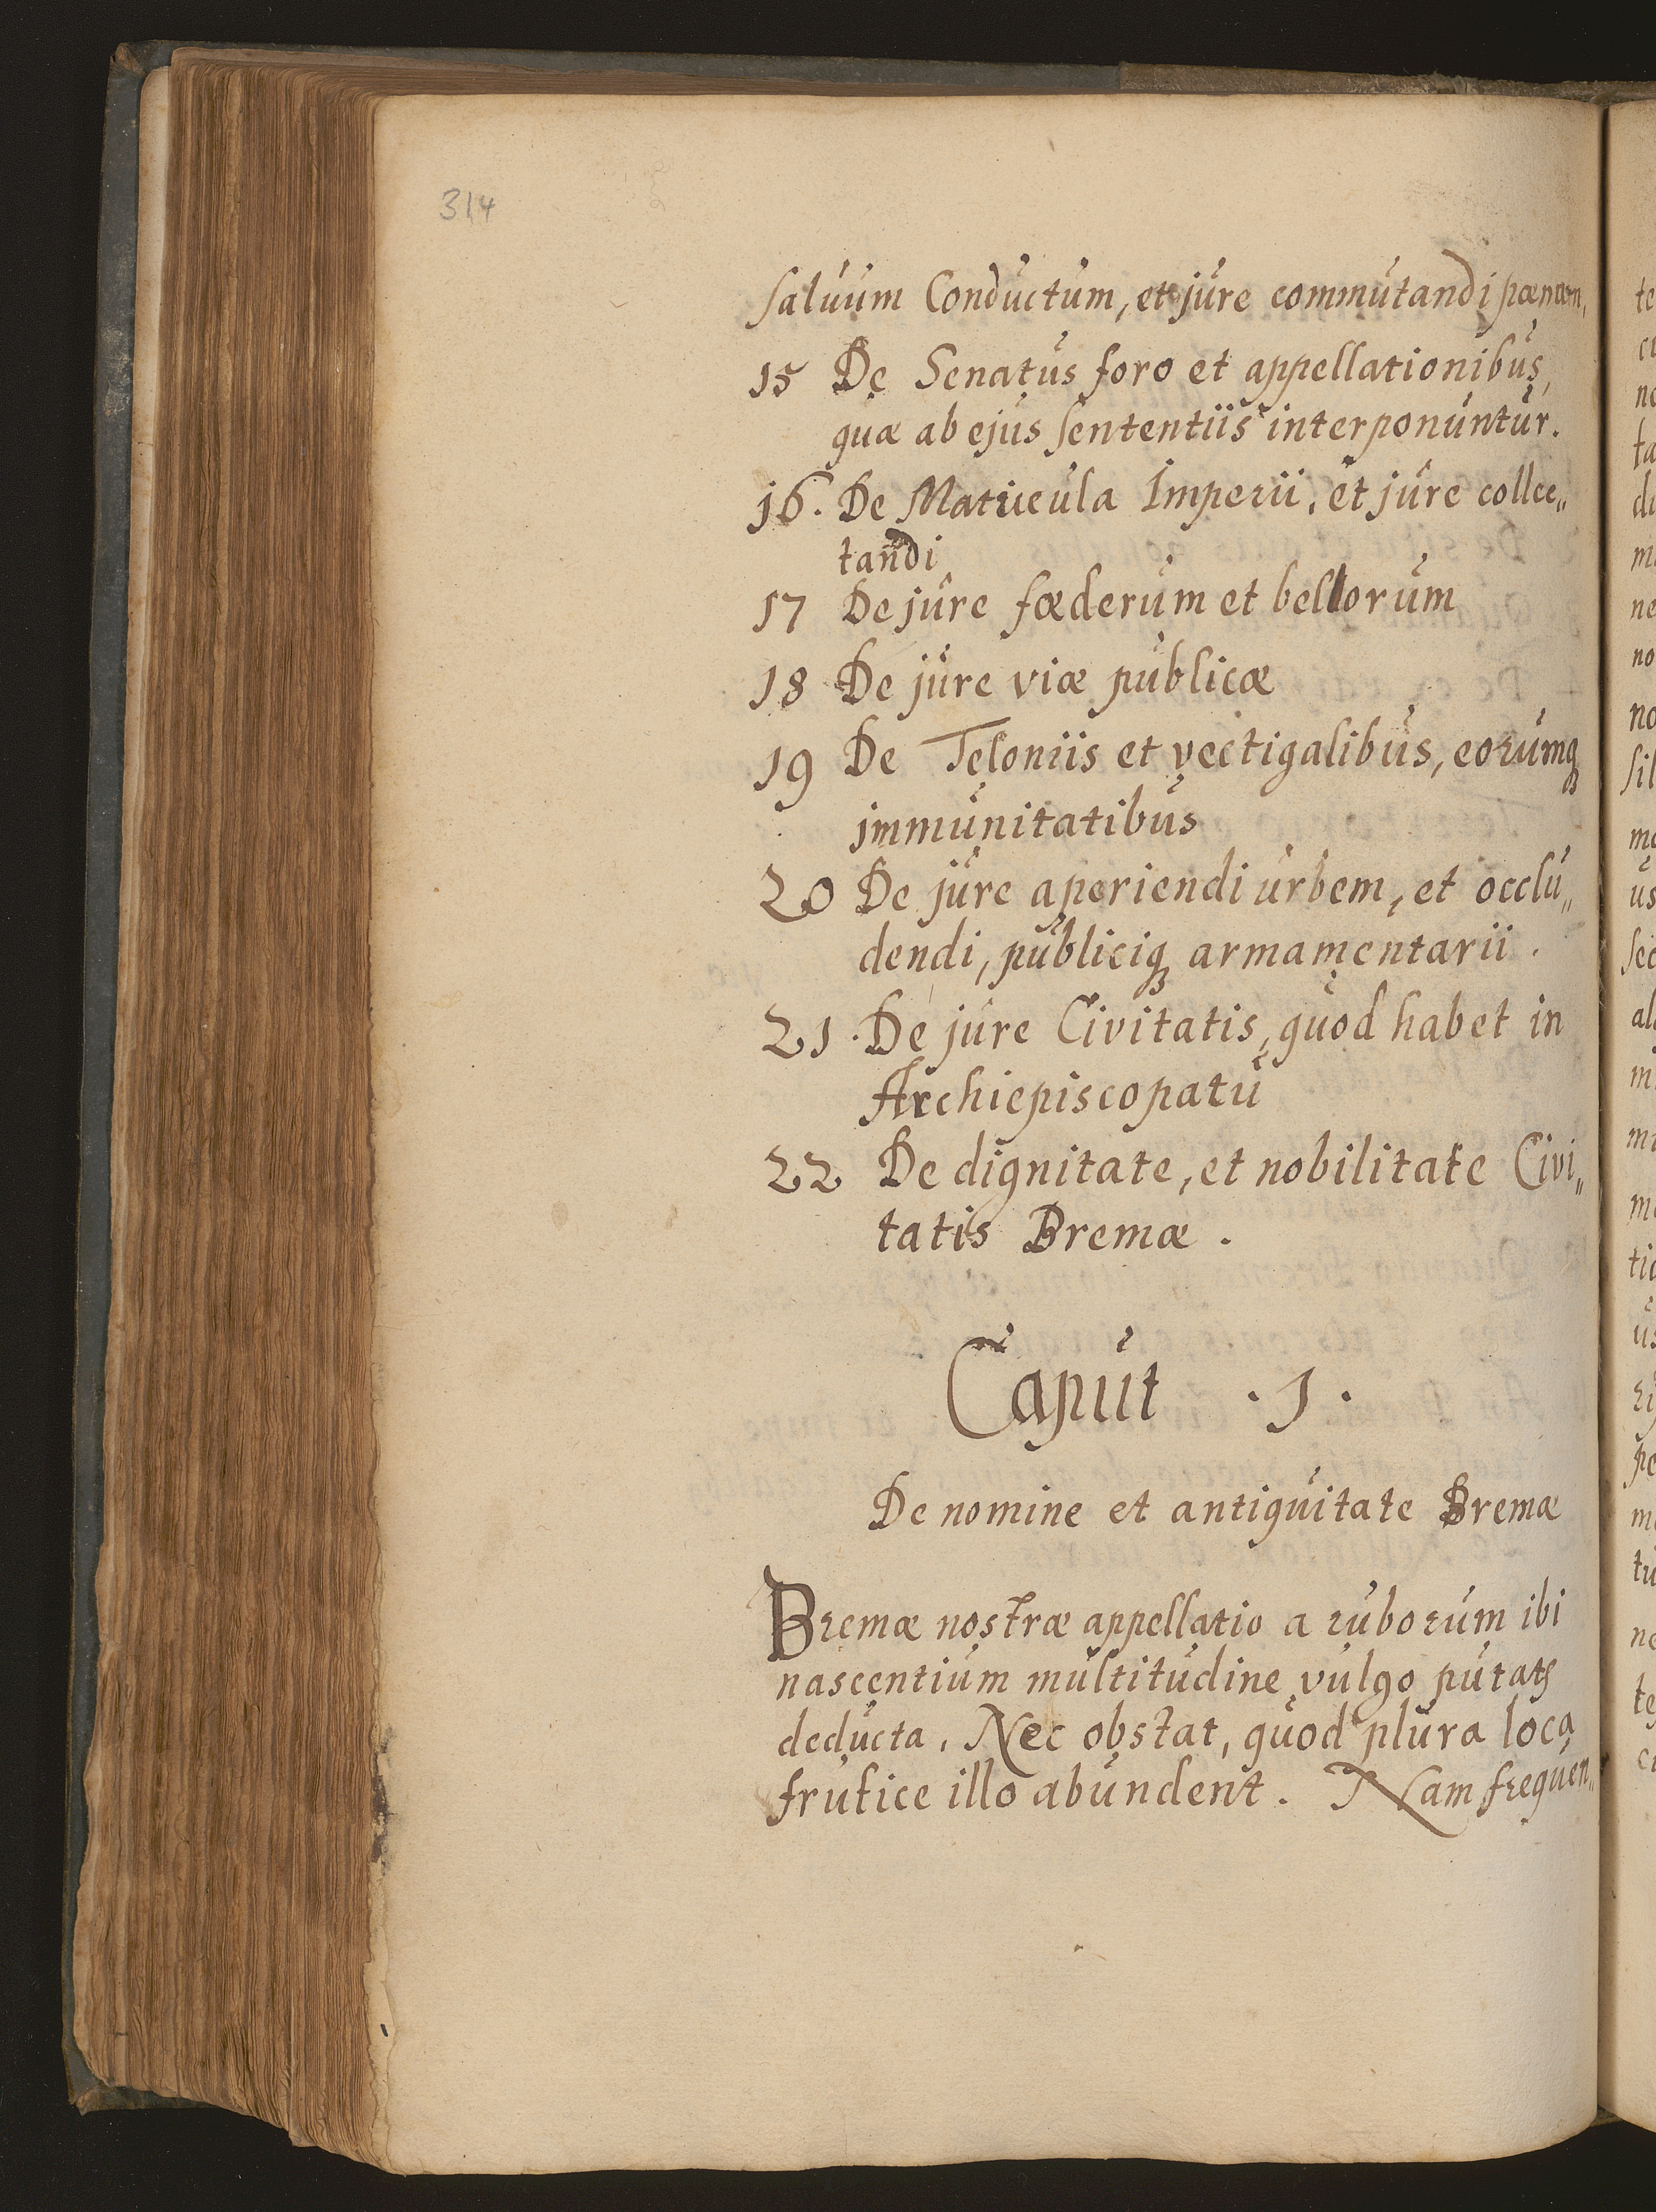 314
saluum Conductum, et jure commutandi pænam,
15 De Senatus foro et appellationibus,
quæ ab ejus sententiis interponuntur.
16. De Matricula Imperii, et jure colle„
tandi
17 De jure fœderum et bellorum
18 De jure viæ publicæ
19 De Teloniis et vectigalibus, eorumqꝫ
immunitatibus
20 De jure aperiendi urbem, et occlu„
dendi, publiciqꝫ armamentarii.
21. De jure Civitatis, quod habet in
Archiepiscopatu
22 De dignitate, et nobilitate Civi„
tatis Bremæ.
Caput .1.
De nomine et antiquitate Bremæ
Bremæ nostræ appellatio a ruborum ibi
nascentium multitudine vulgo putatꝭ
deducta. Nec obstat, quod plura loca
frutice illo abundent. Nam frequen„